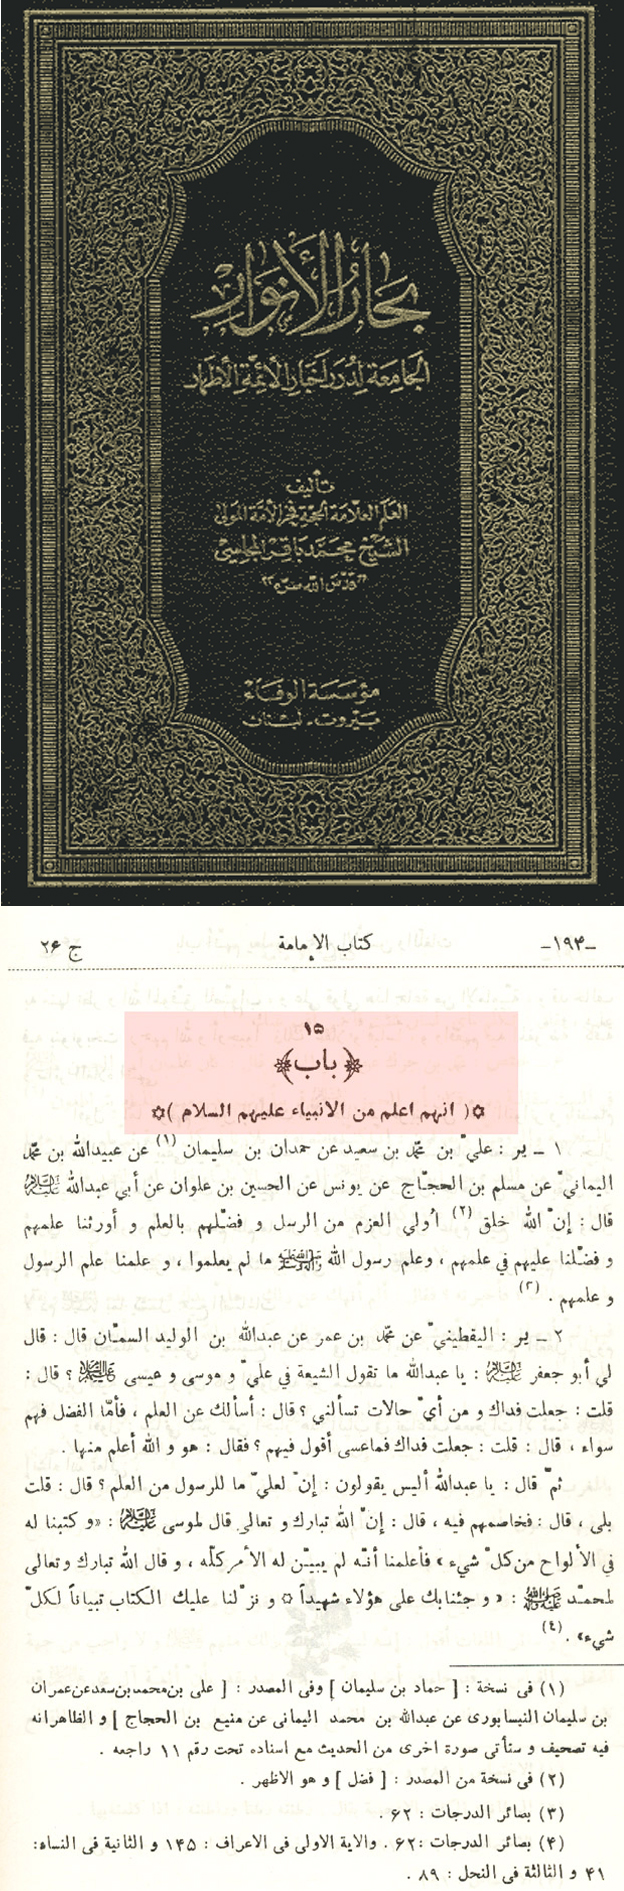 بحار الأنوار
الجامعة لدرر أخبار الأئمة الأطهار
تأليف
العلم العلامة الحجة فخر الأمة المولى
الشيخ محمد باقر المجلسي
"قدس الله سره"
مؤسسة الوفاء
بيروت - لبنان
-۱۹۴- كتاب الإمامة ج ۲۶
۱۵
﴿باب﴾
✡( انهم اعلم من الانبياء عليهم السلام )✡
۱ ـ ير : عليّ بن محمّد بن سعيد عن حمدان بن سليمان (۱) عن عبيدالله بن محمّد
اليمانيّ عن مسلم بن الحجّاج عن يونس عن الحسين بن علوان عن أبي عبدالله عليه السلام
قال : إنّ الله خلق (۲) اُولي العزم من الرسل و فضّلهم بالعلم و أورثنا علمهم
و فضّلنا عليهم في علمهم ، وعلم رسول الله صلى الله عليه وآله ما لم يعلموا ، و علمنا علم الرسول
و علمهم . (۳)
۲ ـ ير : اليقطينيّ عن محمّد بن عمر عن عبدالله بن الوليد السمّان قال : قال
لي أبو جعفر عليه السلام : يا عبدالله ما تقول الشيعة في عليّ و موسى و عيسى عليهم السلام ؟ قال :
قلت : جعلت فداك و من أيّ حالات تسألني ؟ قال : أسألك عن العلم ، فأمّا الفضل فهم
سواء ، قال : قلت : جعلت فداك فماعسى أقول فيهم ؟ فقال : هو و الله أعلم منها .
ثمّ قال : يا عبدالله أليس يقولون : إنّ لعليّ ما للرسول من العلم ؟ قال : قلت
بلى ، قال : فخاصمهم فيه ، قال : إنّ الله تبارك و تعالى قال لموسى عليه السلام : «و كتبنا له
في الألواح من كلّ شيء» فأعلمنا أنّه لم يبيّن له الأمر كلّه ، و قال الله تبارك وتعالى
لمحمّد صلى الله عليه وآله : « و جئنابك على هؤلاء شهيداً ✡ و نزّلنا عليك الكتاب تبياناً لكلّ
شيء» . (۴)
(۱) فى نسخة : [ حماد بن سليمان ] وفى المصدر : [ على بن محمد بن سعد عن عمران
بن سليمان النيسابورى عن عبدالله بن محمد اليمانى عن منيع بن الحجاج ] و الظاهر انه
فيه تصحيف و ستأتى صورة اخرى من الحديث مع اسناده تحت رقم ۱۱ راجعه .
(۲) فى نسخة من المصدر : [ فضل ] و هو الاظهر .
(۳) بصائر الدرجات : ۶۲ .
(۴) بصائر الدرجات : ۶۲ . والاية الاولى فى الاعراف : ۱۴۵ و الثانية فى النساء:
۴۱ و الثالثة فى النحل : ۸۹ .